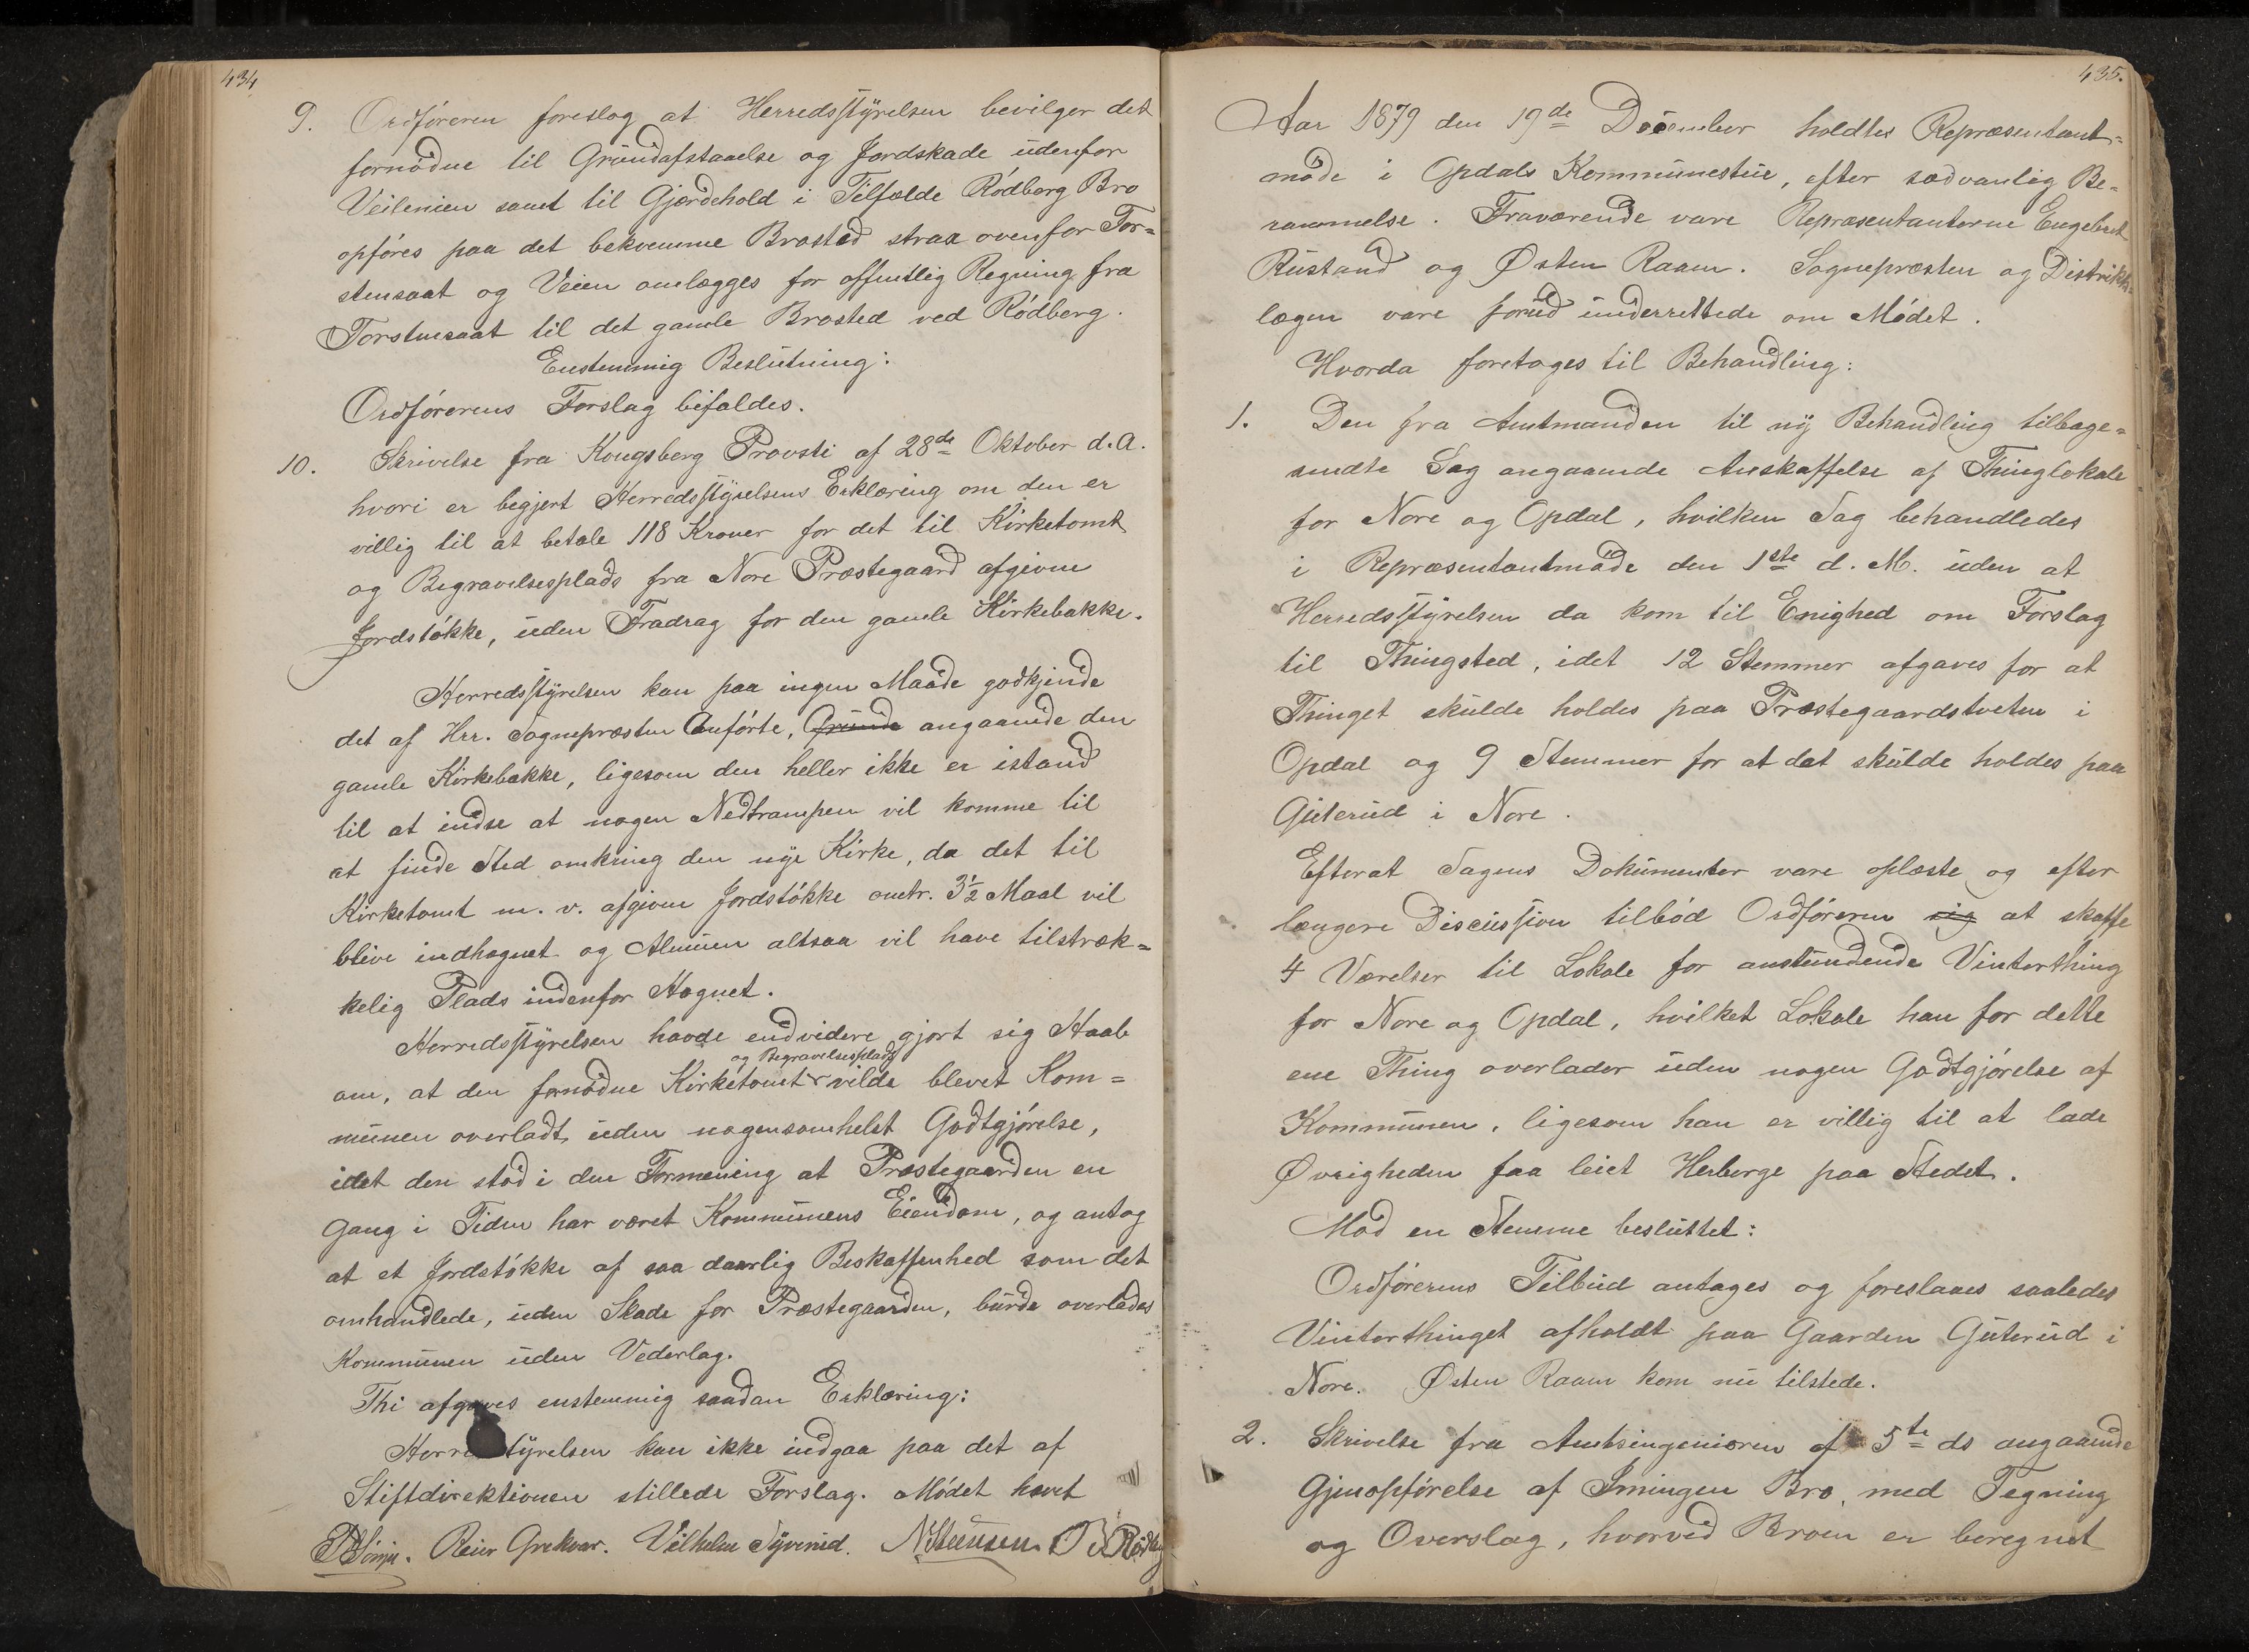 434
9. Ordføreren foreslog at Herredsstyrelsen bevilger det
fornødne til Grundafstaaelse og Jordskade udenfor
Veilinien samt til Gjærdehold i Tilfælde Rødberg Bro
opføres paa det bekvemme Brosted strax ovenfor Tor=
stensaat og Veien omlægges for offentlig Regning fra
Torstensaat til det gamle Brosted ved Rødberg.
Enstemmig Beslutning:
Ordførerens Forslag bifaldes.
10. Skrivelse fra Kongsberg Provsti af 28de Oktober d.A.
hvori er begjert Herredsstyrelsens Erklæring om den er
villig til at betale 118 Kroner for det til Kirketomt
og Begravelsesplads fra Nore Præstegaard afgivne
Jordstøkke, uden Fradrag for den gamle Kirkebakke.
Herredsstyrelsen kan paa ingen Maade godkjende
det af Hrr. Sognepræsten Anførte, Grunde angaaende den
gamle Kirkebakke, ligesom den heller ikke er istand
til at indse at nogen Nedtrampen vil komme til
at finde Sted omkring den nye Kirke, da det til
Kirketomt m. v. afgivne Jordstøkke omtr. 3½ Maal vil
blive indhegnet og Almuen altsaa vil have tilstræk=
kelig Plads indenfor Hegnet.
Herredsstyrelsen havde endvidere gjort sig Haab
og Begravelsesplads
om, at den fornødne Kirketomt vilde blevet Kom=
munen overladt uden nogensomhelst Godtgjørelse,
idet den stod i den Formening at Præstegaarden en
Gang i Tiden har været Kommunens Eiendom, og antog
at et Jordstøkke af saa daarlig Beskaffenhed som det
omhandlede, uden Skade for Præstegaarden, burde overlades
Kommunen uden Vederlag.
Thi afgaves enstemmig saadan Erklæring:
Herredsstyrelsen kan ikke indgaa paa det af
Stiftdirektionen stillede Forslag. Mødet hævet
Reier Grekvar. Vilhelm Tyverud. N Steensen
435.
Aar 1879 den 19de December holdtes Repræsentant=
møde i Opdals Kommunestue, efter sædvanlig Be=
rammelse. Fraværende vare Repræsentanterne Engebret
Rustand og Østen Raaen. Sognepræsten og Distrikts=
lægen vare forud underrettede om Mødet.
Hvorda foretages til Behandling:
1. Den fra Amtmanden til ny Behandling tilbage=
sendte Sag angaaende Anskaffelse af Thinglokale
for Nore og Opdal, hvilken Sag behandledes
i Repræsentantmøde den 1ste d. M. uden at
Herredsstyrelsen da kom til Enighed om Forslag
til Thingsted, idet 12 Stemmer afgaves for at
Thinget skulde holdes paa Præstegaardstveten i
Opdal og 9 Stemmer for at det skulde holdes paa
Guterud i Nore.
Efterat Sagens Dokumenter vare oplæste og efter
længere Discussion tilbød Ordføreren sig at skaffe
4 Værelser til Lokale for anstundende Vinterthing
for Nore og Opdal, hvilket Lokale han for dette
ene Thing overlader uden nogen Godtgjørelse af
Kommunen, ligesom han er villig til at lade
Øvrigheden faa leiet Herberge paa Stedet.
Mod en Stemme besluttet:
Ordførerens Tilbud antages og foreslaaes saaledes
Vinterthinget afholdt paa Gaarden Guterud i
Nore. Østen Raaen kom nu tilstede.
2. Skrivelse fra Amtsingeniøren af 5te ds angaaende
Gjenopførelse af Imingen Bro, med Tegning
og Overslag, hvorved Broen er beregnet